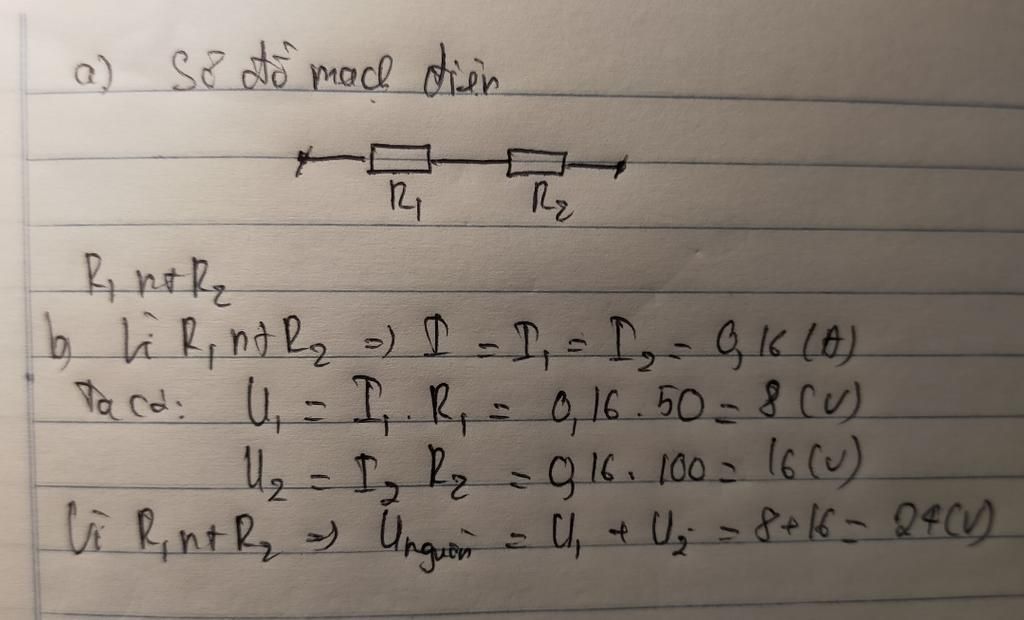 a) Sơ đồ mạch điện
R₁ R₂
R₁ nt R₂
b, Vì R₁ nt R₂ => I = I₁ = I₂ = 0,16 (A)
Ta có: U₁ = I₁. R₁ = 0,16 . 50 = 8 (V)
U₂ = I₂ R₂ = 0,16 . 100 = 16 (V)
Vì R₁ nt R₂ => Unguồn = U₁ + U₂ = 8 + 16 = 24 (V)